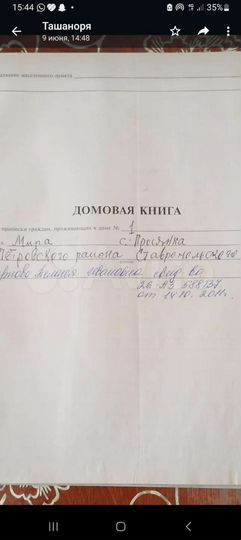 15:44 35%
Ташаноря
9 июня, 14:48
название населенного пункта
ДОМОВАЯ КНИГА
прописки граждан, проживающих в доме № 1
Мира с. Просянка
Петровского района Ставропольского
26 АЗ 588137
от 14.10.2011г.